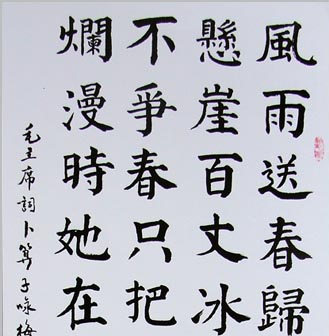 風雨送春歸
懸崖百丈冰
不爭春只把
爛漫時她在
毛主席詞卜算子咏梅